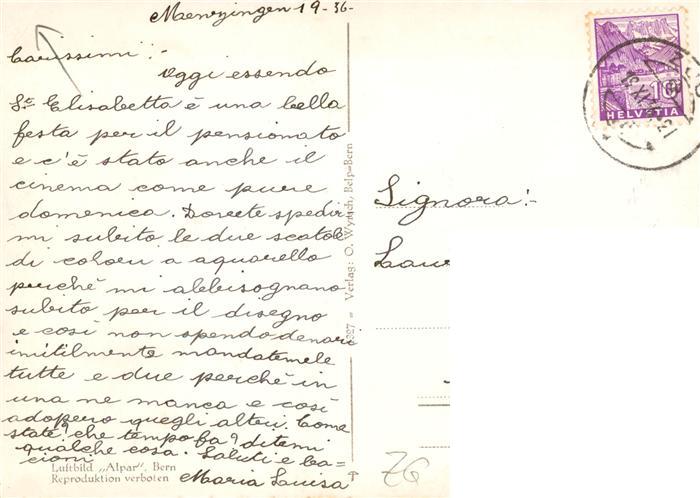 Menzingen 19-36-
Carissimi:-
Oggi essendo
Sta Elisabetta è una bella
festa per il pensionato
e c'è stato anche il
cinema come pure
domenica. Dovete spedir
mi subito le due scatole
di colori a aquarello
perchè mi abbisognano
subito per il disegno
e così non spendo denari
inutilmente mandatemele
tutte e due perchè in
una ne manca e così
adopero quegli altri. Come
state? che tempo fa? ditemi
qualche cosa. Saluti e ba=
cioni
Maria Luisa
Luftbild „Alpar", Bern
Reproduktion verboten
Verlag: O. Wyrsch, Belp=Bern
Signora:-
10
HELVETIA
ZG